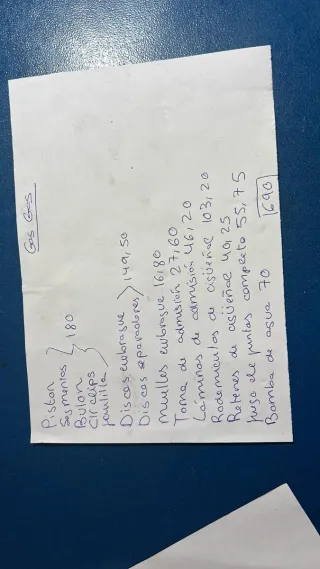 Gas Gas
Piston
Segmentos } 180
Bulon
Circlips
Jaulilla
Discos embrague } 149,50
Discos separadores
Muelles embrague 16,80
Toma de admisión 27,60
Láminas de admisión 46,20
Rodamientos de cigüeñal 103,20
Retenes de cigüeñal 40,25
Juego de juntas completo 55,75
Bomba de agua 70
690